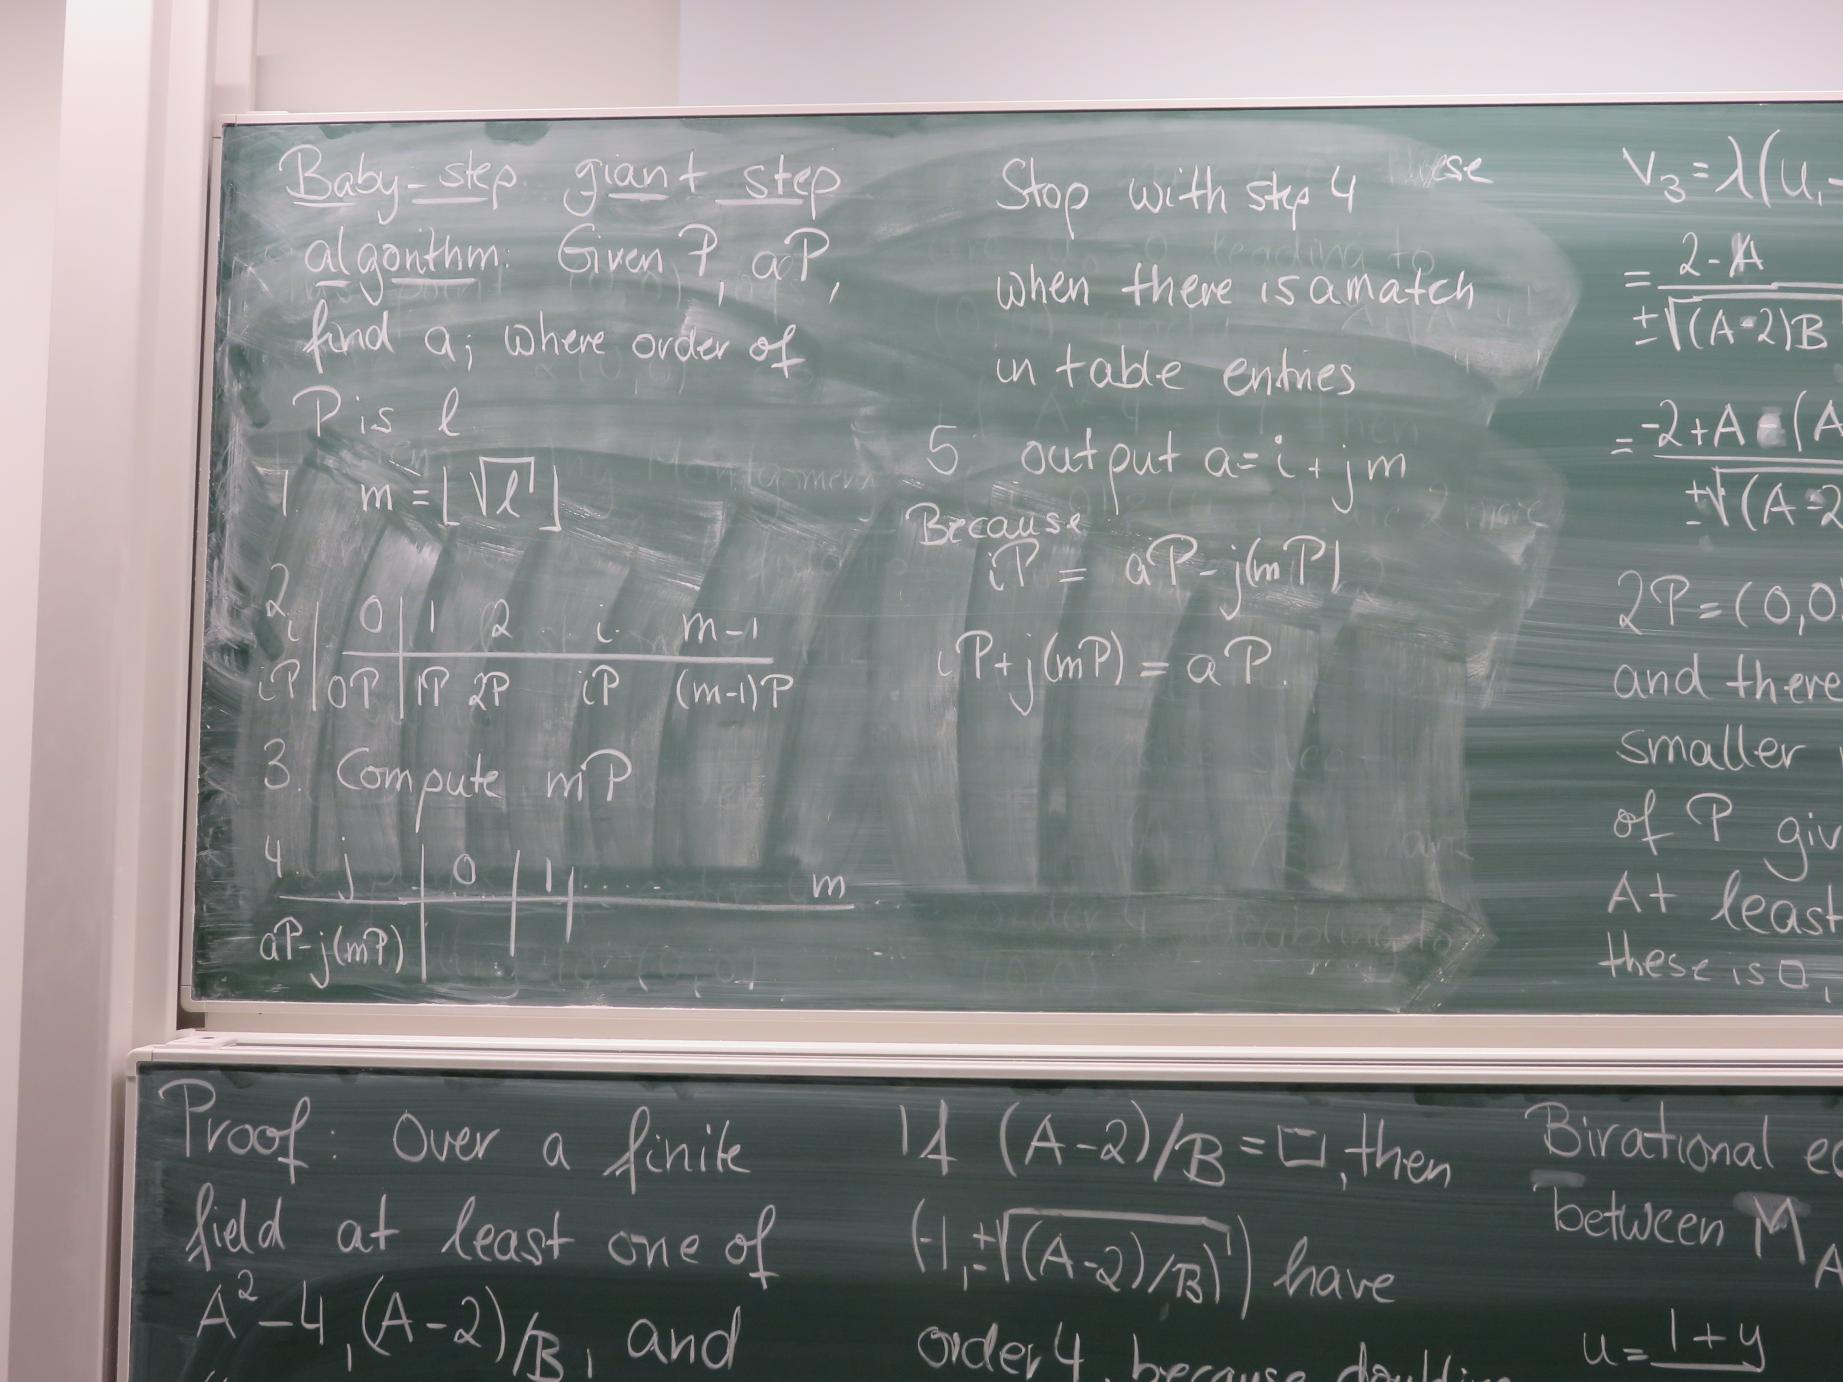 Baby-step giant step
algorithm: Given P, aP,
find a; where order of
P is l
1. m = ⌊√l⌋
2.
i | 0 | 1 2 i m-1
iP | 0P | 1P 2P iP (m-1)P
3. Compute mP
4. j | 0 | 1 | ..... m
aP-j(mP)
Stop with step 4
when there is a match
in table entries
5 output a=i+jm
Because
iP = aP-j(mP)
iP+j(mP) = aP.
these
V₃=λ(u₁-
= 2-A
±√((A-2)B
= -2+A-(A
±√(A-2
2P=(0,0
and there
smaller
of P giv
At least
these is □,
Proof: Over a finite
field at least one of
A²-4, (A-2)/B, and
If (A-2)/B=□, then
(-1,±√((A-2)/B)) have
order 4, because doubling
Birational eq
between M_A
u= 1+y